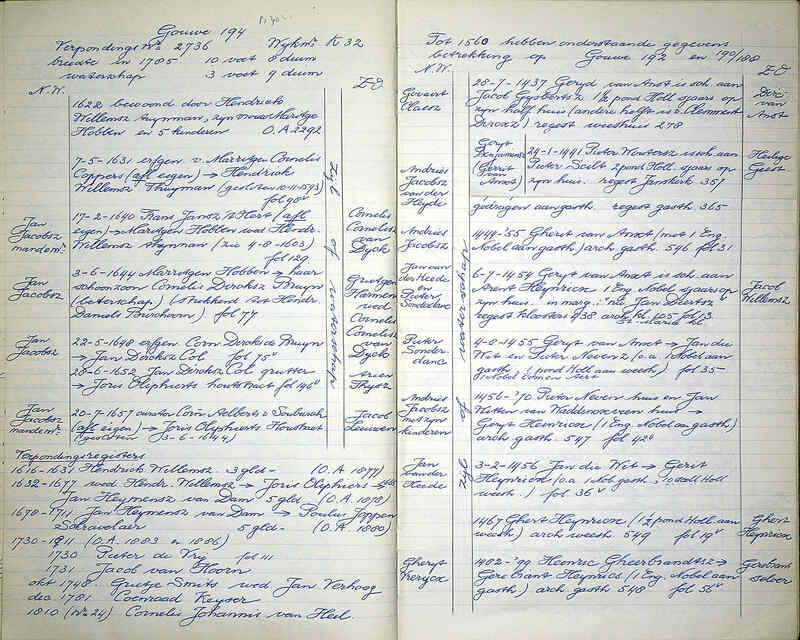 Gouwe 194
Verpondings No 2736 Wijkno K 32
breedte in 1785 10 voet 8 duim
waterschap 3 voet 9 duim
N.W. Z-O
1622 bewoond door Hendrick
Willemsz Tuynman, zijn vrouw Maritge
Hobben en 5 kinderen O.A. 2292
7-5-1631 erfgen v. Marritgen Cornelis
Coppers (afl eigen) → Hendrick
Willemsz Thuyman
fol 90v
Jan
Jacobsz
mandemr
17-2-1640 Frans Jansz (afl
eigen) → Maritgen Hobben wed Hendr.
Willemsz Tuynman (zie 4-8-1603)
fol 129
Cornelis
Cornelisz
van
Dyck
Jan
Jacobsz
3-6-1644 Marritgen Hobben → haar
schoonzoon Cornelis Dircksz de Bruyn
(waterschap) (strekkend tot Hendr.
Daniels Bourschoon) fol 77
Grietgen
Harmens
wed
Cornelis
Cornelisz
van
Dyck
Jan
Jacobsz
22-5-1648 erfgen Corn Dircksz de Bruyn
→ Jan Dircksz Col fol 75v
28-6-1652 Jan Dircksz Col grutter
→ Joris Olephierts houtstract fol 146v
Arien
Thysz
Jan
Jacobsz
mandemr
20-7-1657 curator Corn Aelberts v Souburch
(afl eigen) → Joris Olephierts Houtstraet
3-6-1644)
Jacob
Leeuwen
zyl of waterschap
Verpondingsregisters
1616-1631 Hendrick Willemsz. 3 gld- (O.A. 1877)
1632-1677 wed Hendr. Willemsz → Joris Olephiers →
Jan Heymensz van Dam 5 gld- (O.A. 1878)
1678-1711 Jan Heymensz van Dam → Poulus Joppen
5 gld- (O.A. 1880)
1730-1811 (O.A. 1883 en 1886)
1730 Pieter de Vrij fol 111
1731 Jacob van Hoorn
okt 1748 Grietje Smits wed Jan Verhoog
dec 1781 Coenraad Keyser
1810 (No 24) Cornelis Johannis van Heel.
Tot 1560 hebben onderstaande gegevens
betrekking op Gouwe 192 en 190/188
N.W. Z-O
Govaert
Claesz
28-7-1437 Geryd van Aemst is sch aan
Jacob Gysbertsz 1½ pond Holl sjaars op
zyn half huis (andere helft is v. Clemment
Dircxz) regest weeshuis 278
Dirc
van
Aemst
Andries
Jacobsz
van der
Heyde
Geryt
(Gerrit
van
Aemst)
29-1-1441 Pieter Woutersz is sch aan
Pieter Scelt 2 pond Holl. sjaars op
zyn huis. regest Janskerk 357
gedragen aan gasth. regest gasth 365
Heilige
Geest
Andries
Jacobsz
1444-'55 Gherit van Aemst (met 1 Eng.
Nobel aan gasth) arch gasth. 546 fol 31
Jan van
der Heede
en
Pieter
Sonderdanc
6-7-1454 Geryt van Aemst is sch aan
Arent Heynricxz 1 Eng Nobel sjaars op
zyn huis. in marg: "nu Jan Deertsz"
regest kloosters 438 arch kl 105 fol 13
St Maria kl
Jacob
Willemsz
Pieter
Sonder
danc
4-8-1455 Geryt van Aemst → Jan die
Wit en Pieter Nevenz (o.a. 1 Nobel aan
gasth, 1 pond Holl aan weesh) fol 35
Andries
Jacobsz
met zyn
kinderen
1456-'70 Pieter Neven huis en Jan
Witten van Waddincxveen huis →
Geryt Heinricxz (1 Eng. Nobel aan gasth)
arch gasth. 547 fol 42v
Jan
van der
Heede
3-2-1456 Jan die Wit → Gerit
Heynricxz (o.a. 1 Nob gasth; 1 pond Holl
weesh.) fol 36v
1467 Ghert Heynricxz. (1½ pond Holl. aan
weesh) arch weesh 549 fol 19v
Ghert
Heynricxz
Gheryt
Kerycx
1482-'99 Henric Gheerbrandtsz →
Gerebrant Heynricx (1 Eng. Nobel aan
gasth) arch gasth 548 fol 56v
Gerebrant
selver
zyl of waterschap